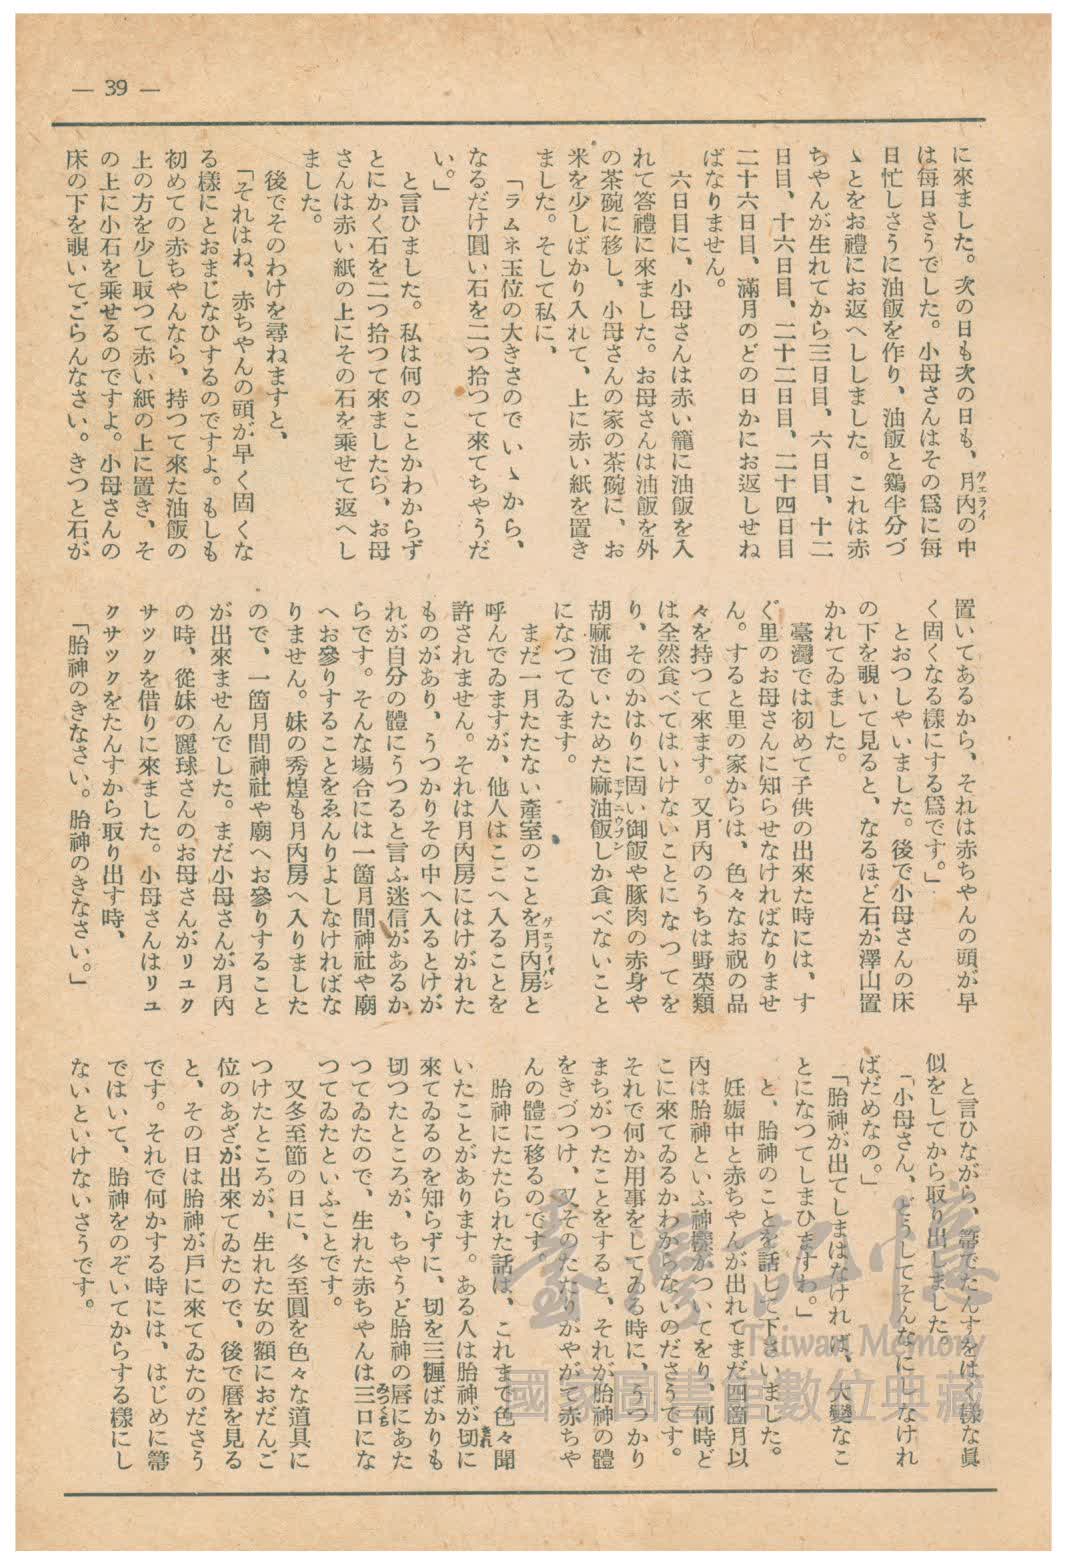 — 39 —
に來ました。次の日も次の日も、月內の中
グエライ
は每日さうでした。小母さんはその爲に每
日忙しさうに油飯を作り、油飯と鷄半分づ
ゝとをお禮にお返へししました。これは赤
ちやんが生れてから三日目、六日目、十二
日目、十六日目、二十二日目、二十四日目
二十六日目、滿月のどの日かにお返しせね
ばなりません。
六日目に、小母さんは赤い籠に油飯を入
れて答禮に來ました。お母さんは油飯を外
の茶碗に移し、小母さんの家の茶碗に、お
米を少しばかり入れて、上に赤い紙を置き
ました。そして私に、
「ラムネ玉位の大きさのでいゝから、
なるだけ圓い石を二つ拾つて來てちやうだ
い。」
と言ひました。私は何のことかわからず
とにかく石を二つ拾つて來ましたら、お母
さんは赤い紙の上にその石を乘せて返へし
ました。
後でそのわけを尋ねますと、
「それはね、赤ちやんの頭が早く固くな
る樣にとおまじなひするのですよ。もしも
初めての赤ちやんなら、持つて來た油飯の
上の方を少し取つて赤い紙の上に置き、そ
の上に小石を乘せるのですよ。小母さんの
床の下を覗いてごらんなさい。きつと石が
置いてあるから、それは赤ちやんの頭が早
く固くなる樣にする爲です。」
とおつしやいました。後で小母さんの床
の下を覗いて見ると、なるほど石が澤山置
かれてゐました。
臺灣では初めて子供の出來た時には、す
ぐ里のお母さんに知らせなければなりませ
ん。すると里の家からは、色々なお祝の品
々を持つて來ます。又月內のうちは野菜類
は全然食べてはいけないことになつてを
り、そのかはりに固い御飯や豚肉の赤身や
胡麻油でいためた麻油飯しか食べないこと
モアニウプン
になつてゐます。
まだ一月たたない產室のことを月內房と
グエライパン
呼んでゐますが、他人はここへ入ることを
許されません。それは月內房にはけがれた
ものがあり、うつかりその中へ入るとけが
れが自分の體にうつると言ふ迷信があるか
らです。そんな場合には一箇月間神社や廟
へお參りすることをゑんりよしなければな
りません。妹の秀煌も月內房へ入りました
ので、一箇月間神社や廟へお參りすること
が出來ませんでした。まだ小母さんが月內
の時、從妹の麗球さんのお母さんがリユク
サツクを借りに來ました。小母さんはリユ
クサツクをたんすから取り出す時、
「胎神のきなさい。胎神のきなさい。」
と言ひながら、箒でたんすをはく樣な眞
似をしてから取り出しました。
「小母さん、どうしてそんなにしなけれ
ばだめなの。」
「胎神が出てしまはなければ、大變なこ
とになつてしまひますわ。」
と、胎神のことを話して下さいました。
妊娠中と赤ちやんが出れてまだ四箇月以
內は胎神といふ神樣がついてをり、何時ど
こに來てゐるかわからないのださうです。
それで何か用事をしてゐる時に、うつかり
まちがつたことをすると、それが胎神の體
をきづつけ、又そのたたりがやがて赤ちや
んの體に移るのです。
胎神にたたられた話は、これまで色々聞
いたことがあります。ある人は胎神が切に
きれ
來てゐるのを知らずに、切を三糎ばかりも
切つたところが、ちやうど胎神の唇にあた
つてゐたので、生れた赤ちやんは三口にな
みつくち
つてゐたといふことです。
又冬至節の日に、冬至圓を色々な道具に
つけたところが、生れた女の額におだんご
位のあざが出來てゐたので、後で曆を見る
と、その日は胎神が戶に來てゐたのださう
です。それで何かする時には、はじめに箒
ではいて、胎神をのぞいてからする樣にし
ないといけないさうです。
臺灣記憶
Taiwan Memory
國家圖書館數位典藏